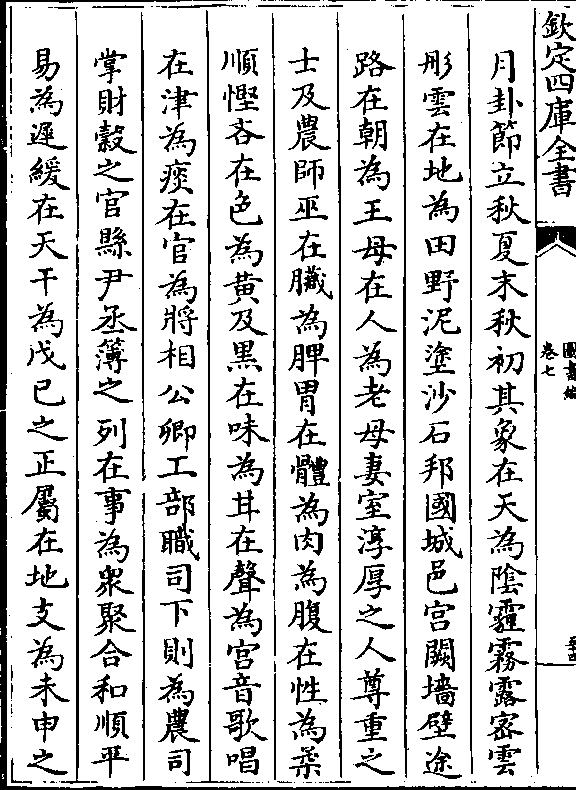 欽定四庫全書
圖書編
卷七
月卦節立秋夏末秋初其象在天為陰霾霧露密雲
彤雲在地為田野泥塗沙石邦國城邑宮闕墻壁途
路在朝為王母在人為老母妻室淳厚之人尊重之
士及農師巫在臟為脾胃在體為肉為腹在性為柔
順慳吝在色為黄及黑在味為甘在聲為宮音歌唱
在津為痰在官為將相公卿工部職司下則為農司
掌財糓之官縣尹丞簿之列在事為衆聚合和順平
易為遲緩在天干為戊已之正屬在地支為未申之